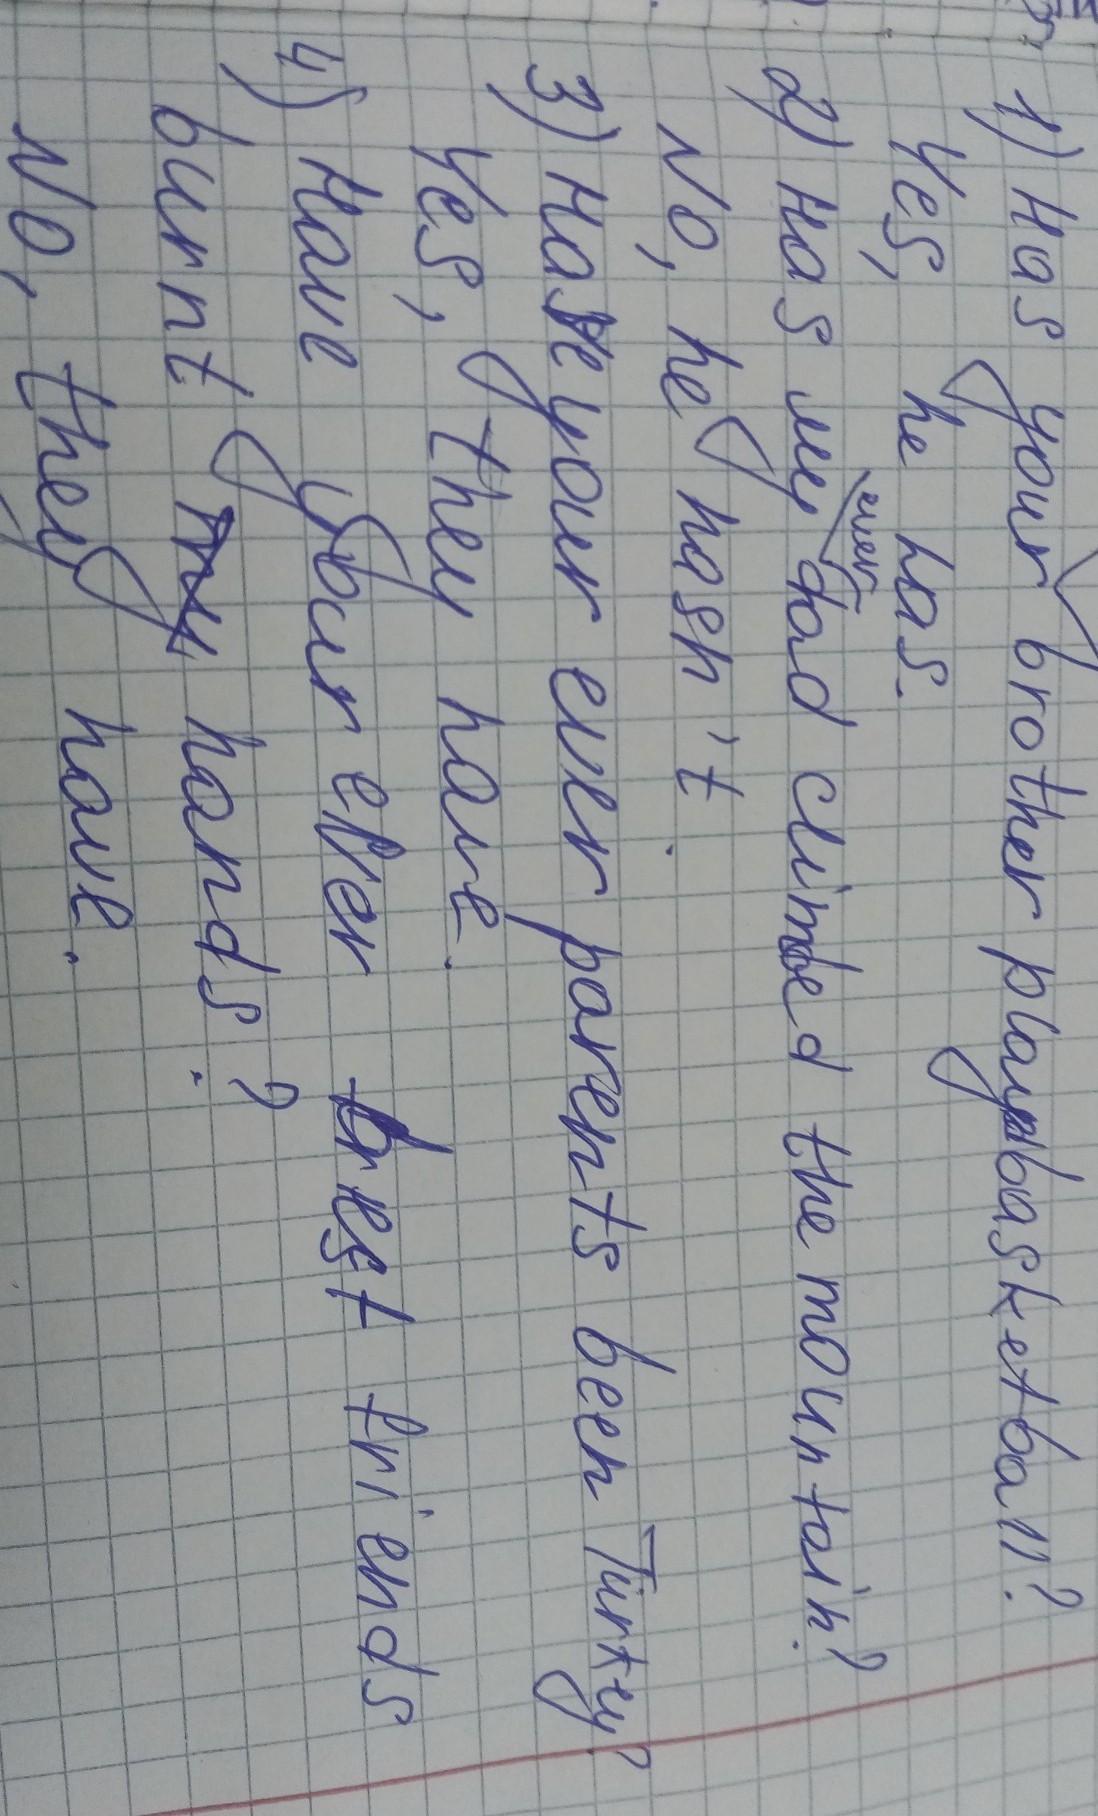 1) Has your brother play basketball?
Yes, he has.
2) Has my ever dad climbed the mountain?
No, he hasn't.
3) Have your ever parents been Turkey?
Yes, they have.
4) Have your ever best friends
burnt hands?
No, they have.